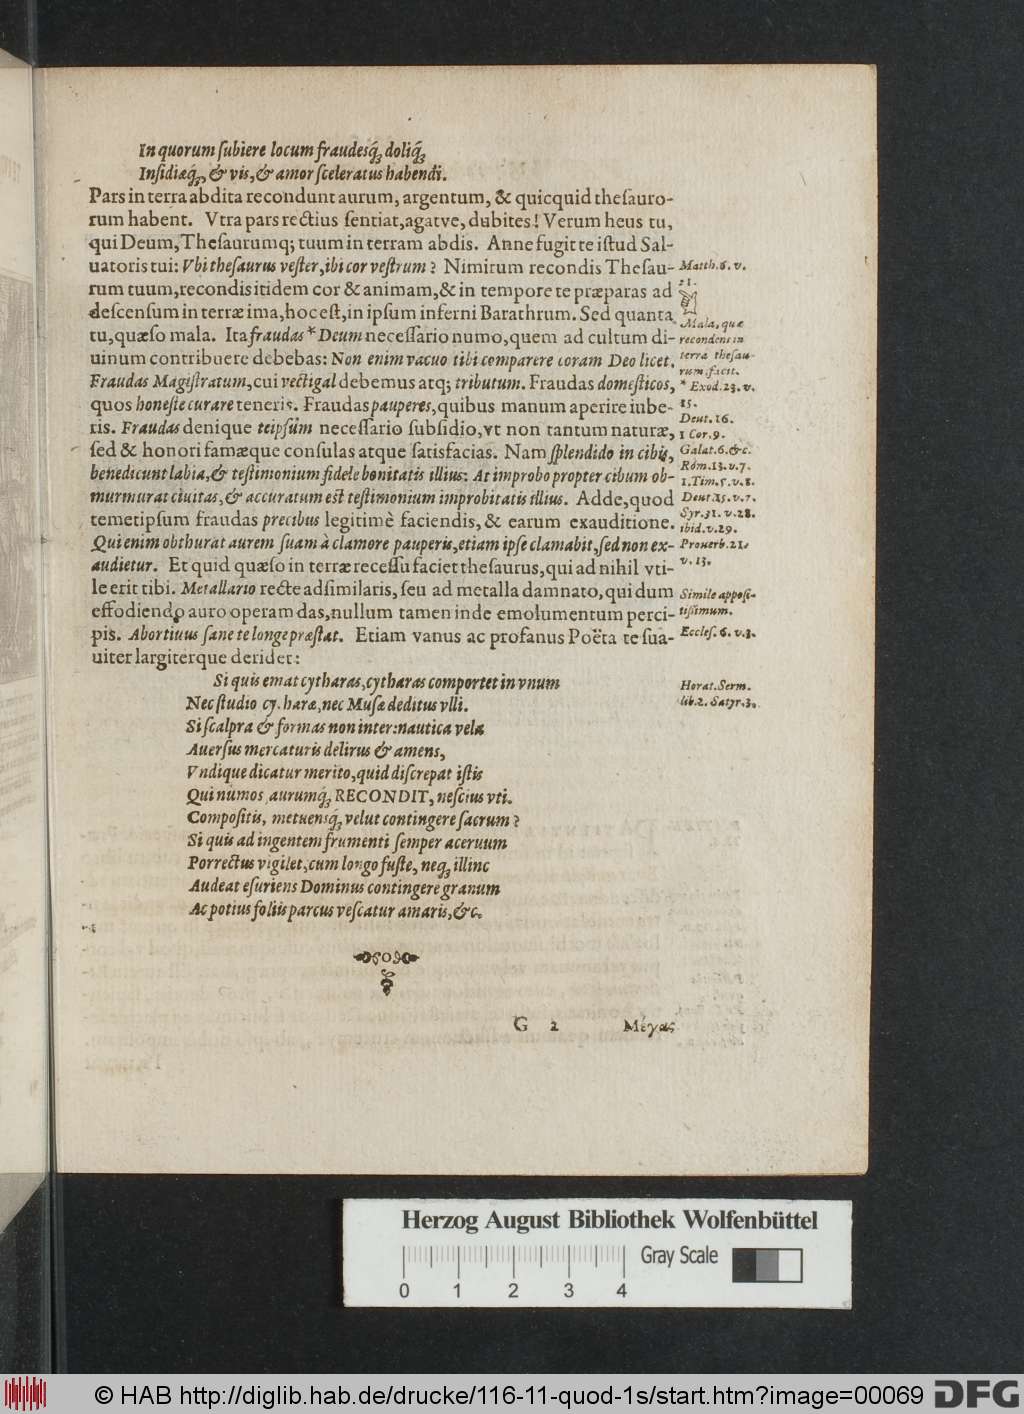 In quorum ſubiere locum fraudesq́; doliq́;
Inſidiæq́;, & vis, & amor ſceleratus habendi.
Pars in terra abdita recondunt aurum, argentum, & quicquid theſauro-
rum habent. Vtra pars rectius ſentiat, agatve, dubites! Verum heus tu,
qui Deum, Theſaurumq; tuum in terram abdis. Anne fugit te iſtud Sal-
uatoris tui: Vbi theſaurus veſter, ibi cor veſtrum? Nimirum recondis Theſau-
rum tuum, recondis itidem cor & animam, & in tempore te præparas ad
deſcenſum in terræ ima, hoc eſt, in ipſum inferni Barathrum. Sed quanta
tu, quæſo mala. Ita fraudas * Deum neceſſario numo, quem ad cultum di-
uinum contribuere debebas: Non enim vacuo tibi comparere coram Deo licet.
Fraudas Magiſtratum, cui vectigal debemus atq; tributum. Fraudas domeſticos,
quos honeſte curare teneris. Fraudas pauperes, quibus manum aperire iube-
ris. Fraudas denique teipſum neceſſario ſubſidio, vt non tantum naturæ,
ſed & honori famæque conſulas atque ſatisfacias. Nam ſplendido in cibis,
benedicunt labia, & teſtimonium fidele bonitatis illius: At improbo propter cibum ob-
murmurat ciuitas, & accuratum eſt teſtimonium improbitatis illius. Adde, quod
temetipſum fraudas precibus legitimè faciendis, & earum exauditione.
Qui enim obthurat aurem ſuam à clamore pauperis, etiam ipſe clamabit, ſed non ex-
audietur. Et quid quæſo in terræ receſſu faciet theſaurus, qui ad nihil vti-
le erit tibi. Metallario recte adſimilaris, ſeu ad metalla damnato, qui dum
effodiendo auro operam das, nullum tamen inde emolumentum perci-
pis. Abortiuus ſane te longe præſtat. Etiam vanus ac profanus Poëta te ſua-
uiter largiterque deridet:
Si quis emat cytharas, cytharas comportet in vnum
Nec ſtudio cy haræ, nec Muſæ deditus vlli.
Si ſcalpra & formas non inter: nautica vela
Auerſus mercaturis delirus & amens,
Vndique dicatur merito, quid diſcrepat iſtis
Qui numos aurumq́; RECONDIT, neſcius vti.
Compoſitis, metuensq́; velut contingere ſacrum?
Si quis ad ingentem frumenti ſemper aceruum
Porrectus vigilet, cum longo fuſte, neq; illinc
Audeat eſuriens Dominus contingere granum
Ac potius foliis parcus veſcatur amaris, &c.
G 2 Μέγας
Matth. 6. v.
21.
Mala, quæ
recondens in
terra theſau-
rum facit.
* Exod. 23. v.
15.
Deut. 16.
1 Cor. 9.
Galat. 6. &c.
Rom. 13. v. 7.
1. Tim. 5. v. 8.
Deut. 15. v. 7.
Syr. 31. v. 28.
ibid. v. 29.
Prouerb. 21.
v. 13.
Simile appoſi-
tiſſimum.
Eccleſ. 6. v. 3.
Horat. Serm.
lib. 2. Satyr. 3.
Herzog August Bibliothek Wolfenbüttel
Gray Scale
0 1 2 3 4
© HAB http://diglib.hab.de/drucke/116-11-quod-1s/start.htm?image=00069
DFG